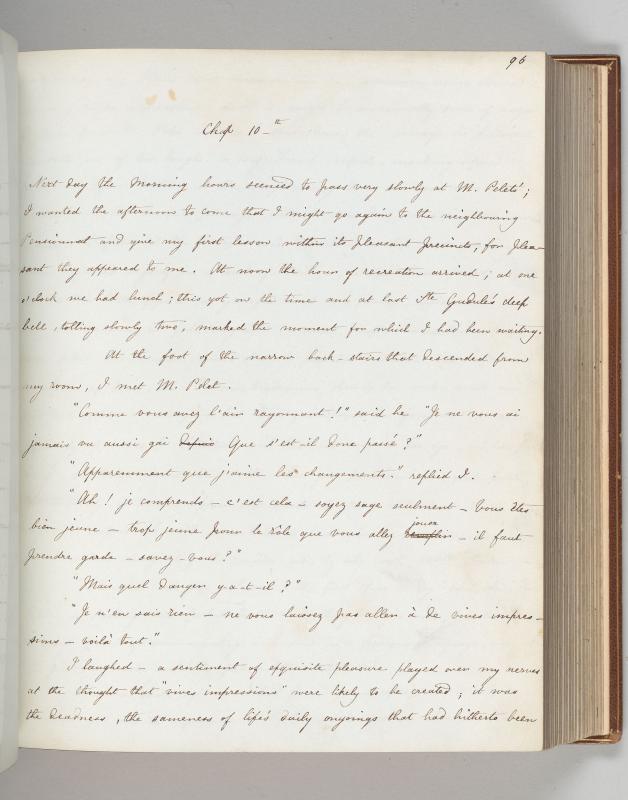 96
Chap 10_th
Next day the morning hours seemed to pass very slowly at M. Pelets';
I wanted the afternoon to come that I might go again to the neighbouring
Pensionnat and give my first lesson within its pleasant precincts, for plea-
sant they appeared to me. At noon the hour of recreation arrived; at one
o'clock we had lunch; this got on the time and at last Ste Gudule's deep
bell, tolling slowly two, marked the moment for which I had been waiting.
At the foot of the narrow back-stairs that descended from
my room, I met M. Pelet.
"Comme vous avez l'air rayonnant!" said he "Je ne vous ai
jamais vu aussi gai depuis Que s'est-il donc passé?"
"Apparemment que j'aime les changements." replied I.
"Ah! je comprends – c'est cela – soyez sage seulment – Vous êtes
bien jeune – trop jeune pour le rôle que vous allez remplir jouer – il faut
prendre garde – savez-vous?"
"Mais quel danger y-a-t-il?"
"Je n'en sais rien – ne vous laissez pas aller à de vives impres-
sions – voilà tout."
I laughed – a sentiment of exquisite pleasure played over my nerves
at the thought that "vives impressions" were likely to be created; it was
the deadness, the sameness of life's daily ongoings that had hitherto been